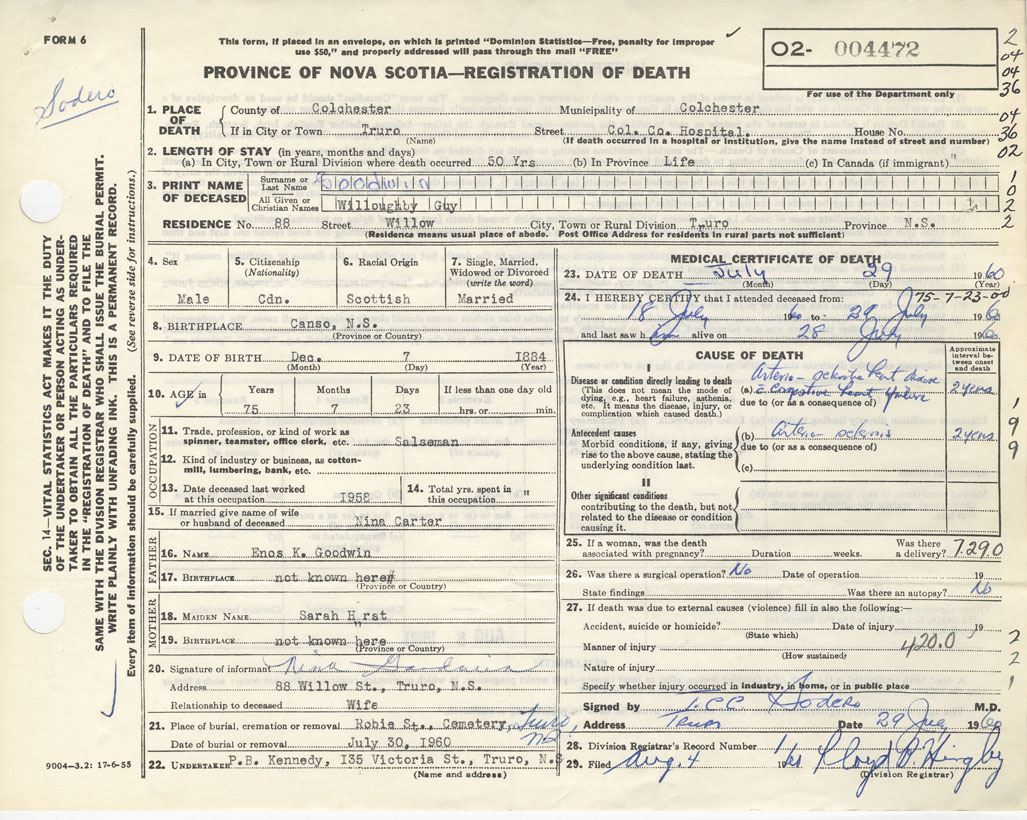 FORM 6
Sodero
This form, if placed in an envelope, on which is printed "Dominion Statistics—Free, penalty for improper
use $50," and properly addressed will pass through the mail "FREE"
PROVINCE OF NOVA SCOTIA—REGISTRATION OF DEATH
02- 004472
For use of the Department only
2
04
04
36
04
36
02
1
0
2
2
1. PLACE OF DEATH
County of Colchester Municipality of Colchester
If in City or Town Truro Street Col. Co. Hospital. House No.
(Name) (If death occurred in a hospital or institution, give the name instead of street and number)
2. LENGTH OF STAY (in years, months and days)
(a) In City, Town or Rural Division where death occurred 50 Yrs (b) In Province Life (c) In Canada (if immigrant) "
3. PRINT NAME OF DECEASED
Surname or Last Name Goodwin
All Given or Christian Names Willoughby Guy
RESIDENCE No. 88 Street Willow City, Town or Rural Division Truro Province N.S.
(Residence means usual place of abode. Post Office Address for residents in rural parts not sufficient)
4. Sex
Male
5. Citizenship
(Nationality)
Cdn.
6. Racial Origin
Scottish
7. Single, Married, Widowed or Divorced
(write the word)
Married
8. BIRTHPLACE Canso, N.S.
(Province or Country)
9. DATE OF BIRTH Dec. 7 1884
(Month) (Day) (Year)
10. AGE in
Years Months Days If less than one day old
75 7 23 hrs. or min.
OCCUPATION
11. Trade, profession, or kind of work as
spinner, teamster, office clerk, etc. Salseman
12. Kind of industry or business, as cotton-
mill, lumbering, bank, etc.
13. Date deceased last worked
at this occupation 1958
14. Total yrs. spent in
this occupation "
15. If married give name of wife
or husband of deceased Nina Carter
FATHER
16. NAME Enos K. Goodwin
17. BIRTHPLACE not known here
(Province or Country)
MOTHER
18. MAIDEN NAME Sarah Hurst
19. BIRTHPLACE not known here
(Province or Country)
20. Signature of informant Nina Goodwin
Address 88 Willow St., Truro, N.S.
Relationship to deceased Wife
21. Place of burial, cremation or removal Robie St., Cemetery, Truro, NS
Date of burial or removal July 30, 1960
22. UNDERTAKER P.B. Kennedy, I35 Victoria St., Truro, N.S
(Name and address)
MEDICAL CERTIFICATE OF DEATH
23. DATE OF DEATH July 29 1960
(Month) (Day) (Year)
24. I HEREBY CERTIFY that I attended deceased from: 75-7-23-00
18 July 1960 to 29 July 1960
and last saw him alive on 28 July 1960
CAUSE OF DEATH
Approximate interval between onset and death
I
Disease or condition directly leading to death
(This does not mean the mode of
dying, e.g., heart failure, asthenia,
etc. It means the disease, injury, or
complication which caused death.)
Arterio-sclerotic heart disease
(a) c Congestive heart failure 2 years
due to (or as a consequence of)
Antecedent causes
Morbid conditions, if any, giving
rise to the above cause, stating the
underlying condition last.
(b) Arterio sclerosis 2 years
due to (or as a consequence of)
(c)
II
Other significant conditions
contributing to the death, but not
related to the disease or condition
causing it.
1
9
9
25. If a woman, was the death
associated with pregnancy? Duration weeks. Was there a delivery? 7290
26. Was there a surgical operation? No Date of operation 19
State findings Was there an autopsy? No
27. If death was due to external causes (violence) fill in also the following:—
Accident, suicide or homicide? Date of injury 19
(State which)
Manner of injury 420.0
(How sustained)
Nature of injury
Specify whether injury occurred in industry, in home, or in public place
2
2
1
Signed by Sodero M.D.
Address Truro Date 29 July 1960
28. Division Registrar's Record Number
29. Filed Aug. 4 1960
(Division Registrar)
SEC. 14—VITAL STATISTICS ACT MAKES IT THE DUTY
OF THE UNDERTAKER OR PERSON ACTING AS UNDER-
TAKER TO OBTAIN ALL THE PARTICULARS REQUIRED
IN THE "REGISTRATION OF DEATH" AND TO FILE THE
SAME WITH THE DIVISION REGISTRAR WHO SHALL ISSUE THE BURIAL PERMIT.
WRITE PLAINLY WITH UNFADING INK. THIS IS A PERMANENT RECORD.
Every item of information should be carefully supplied. (See reverse side for instructions.)
9004-3.2: 17-6-55